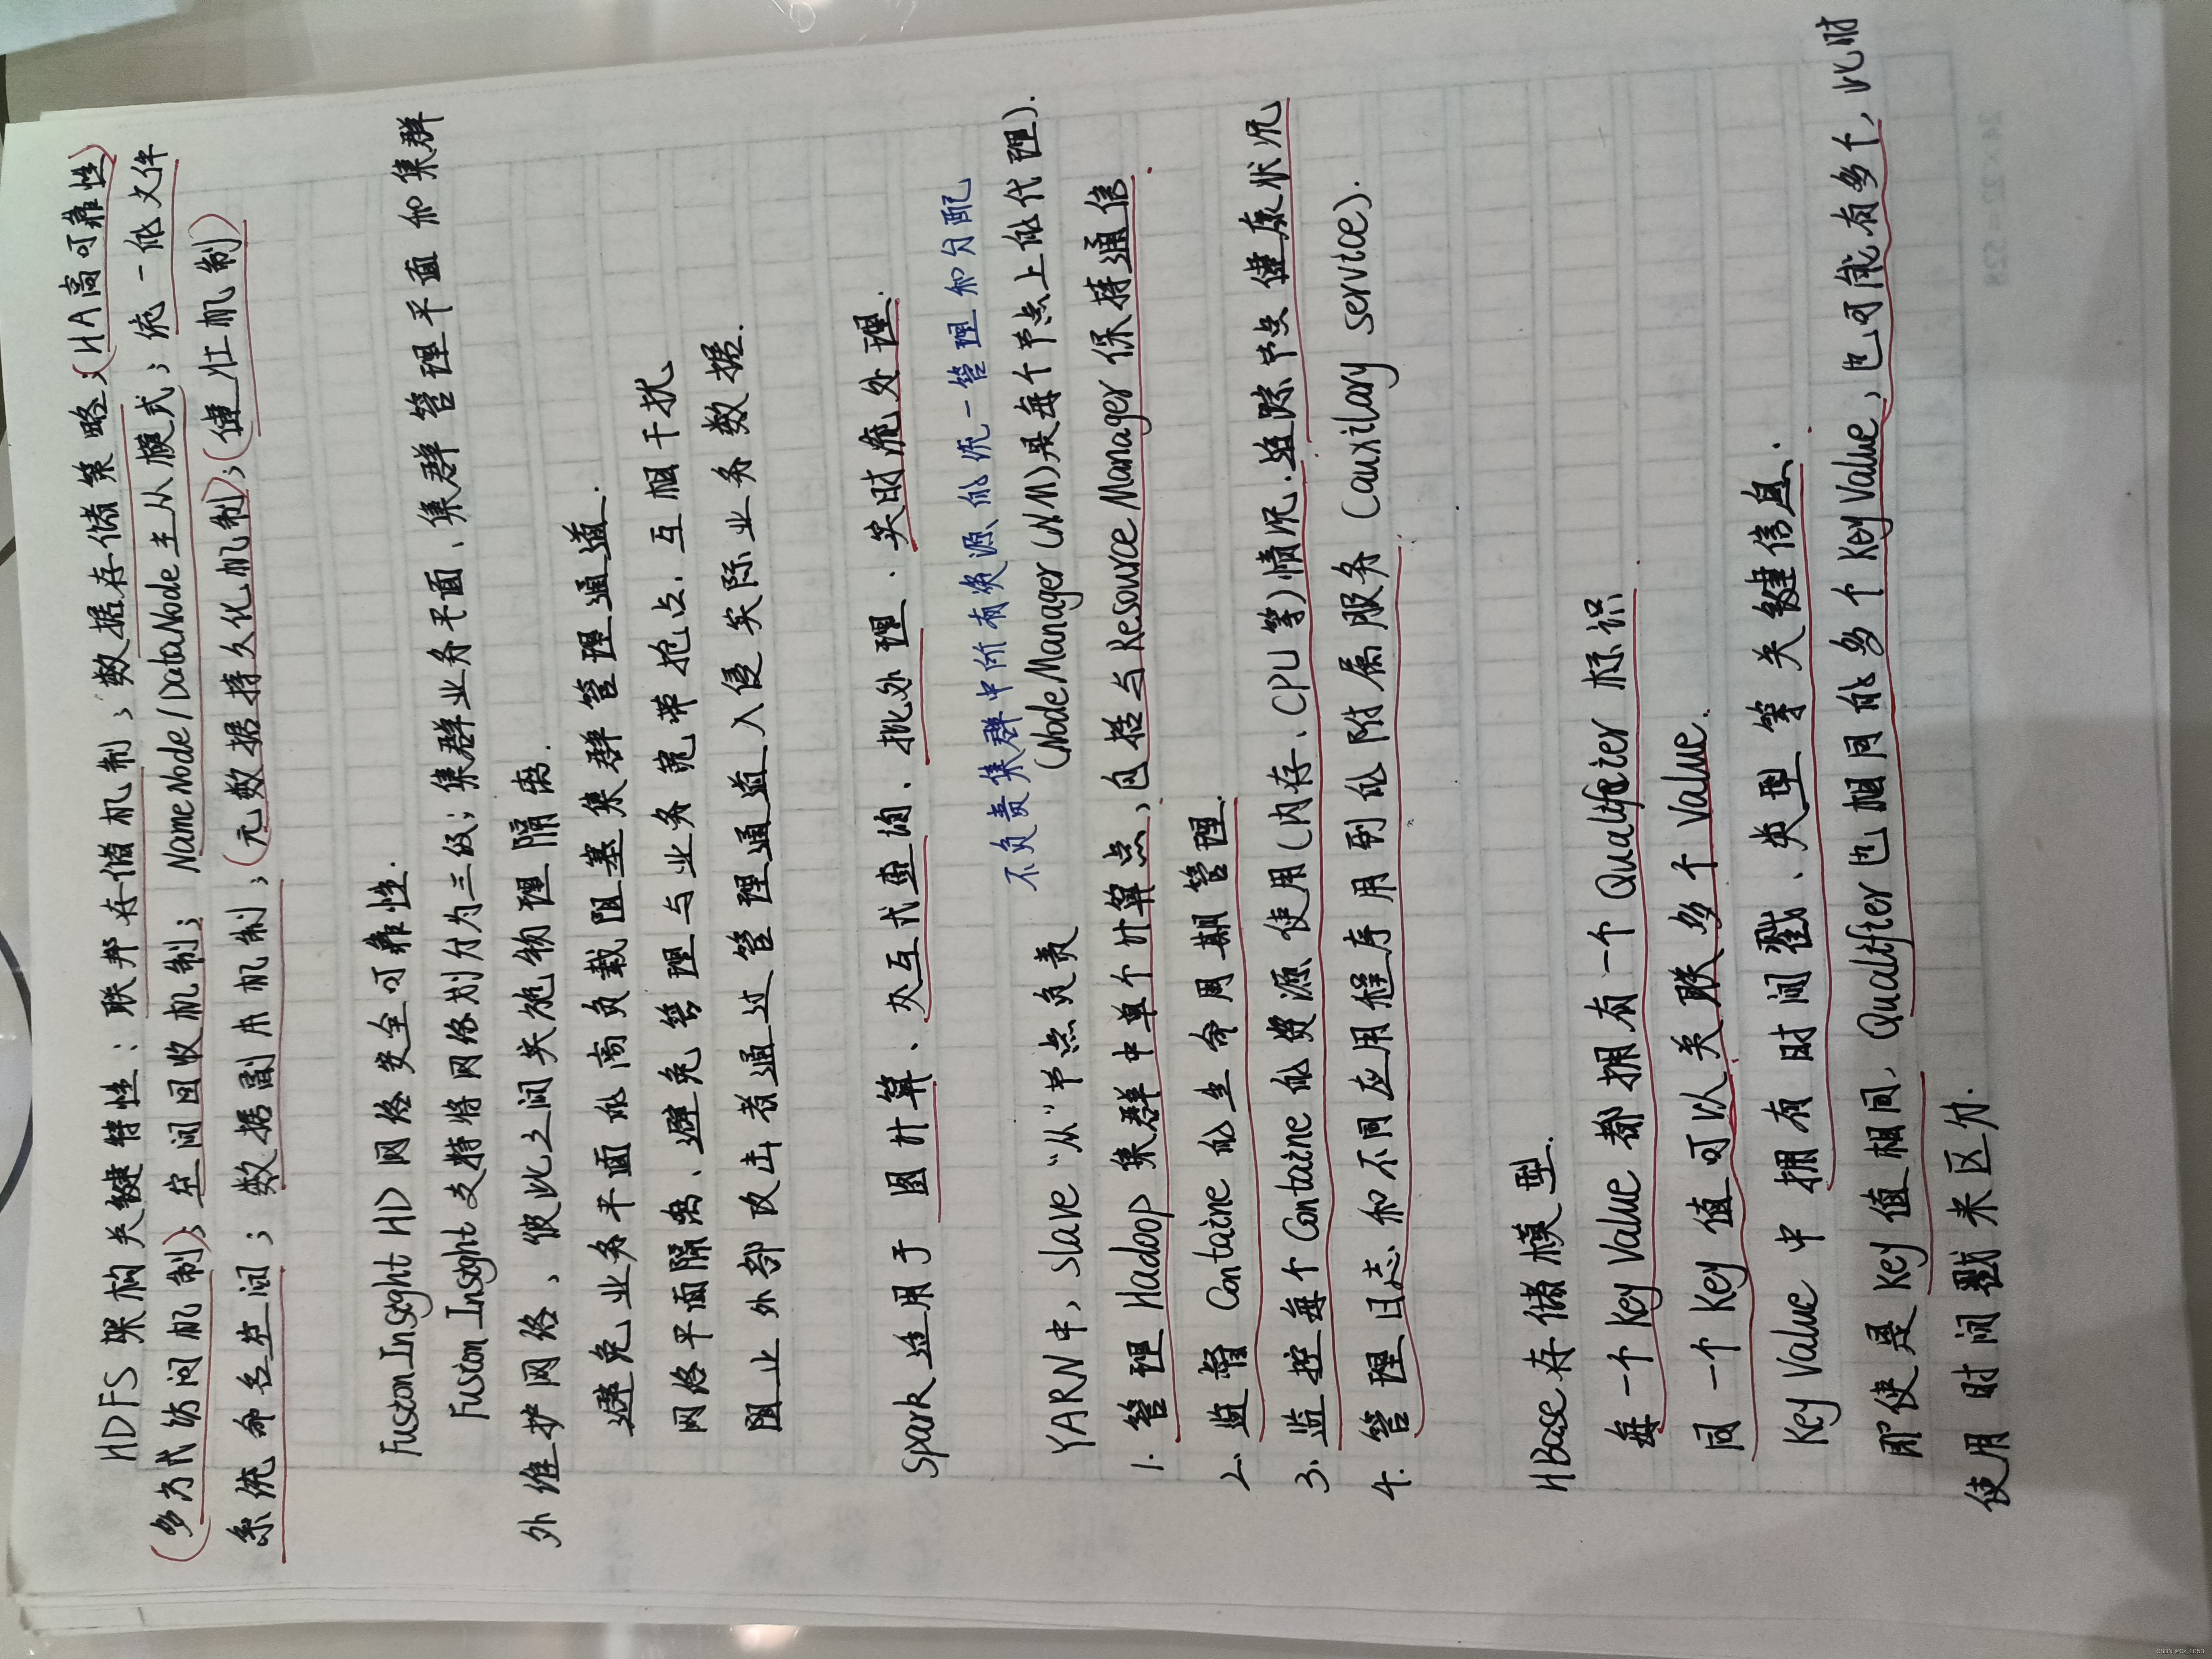 HDFS架构关键特性：联邦存储机制；数据存储策略；(HA高可靠性)
(多方式访问机制)；空间回收机制；NameNode/DataNode主从模式；统一的文件
系统命名空间；数据副本机制；(元数据持久化机制)；(健壮机制)
FusionInsight HD 网络安全可靠性.
FusionInsight支持将网络划分为三级；集群业务平面、集群管理平面和集群
外维护网络、彼此之间实施物理隔离.
避免业务平面的高负载阻塞集群管理通道.
网络平面隔离、避免管理与业务宽带抢占、互相干扰
阻止外部攻击者通过管理通道入侵实际业务数据.
Spark适用于 图计算、交互式查询、批处理、实时流处理.
不负责集群中所有资源的统一管理和分配
YARN中，slave"从"节点负责 (NodeManager(NM)是每个节点上的代理).
1. 管理Hadoop集群中单个计算点，包括与ResourceManager保持通信.
2. 监督Containe的生命周期管理.
3. 监控每个Containe的资源使用(内存、CPU等)情况.追踪节点健康状况
4. 管理日志和不同应用程序用到的附属服务(auxilary service).
HBase存储模型.
每一个Key Value都拥有一个Qualifier标识.
同一个Key值可以关联多个Value.
Key Value中拥有时间戳、类型等关键信息.
即使是Key值相同，Qualifier也相同的多个KeyValue，也可能有多个，此时
使用时间戳来区分.
24×22=528
CSDN @CZ_1053